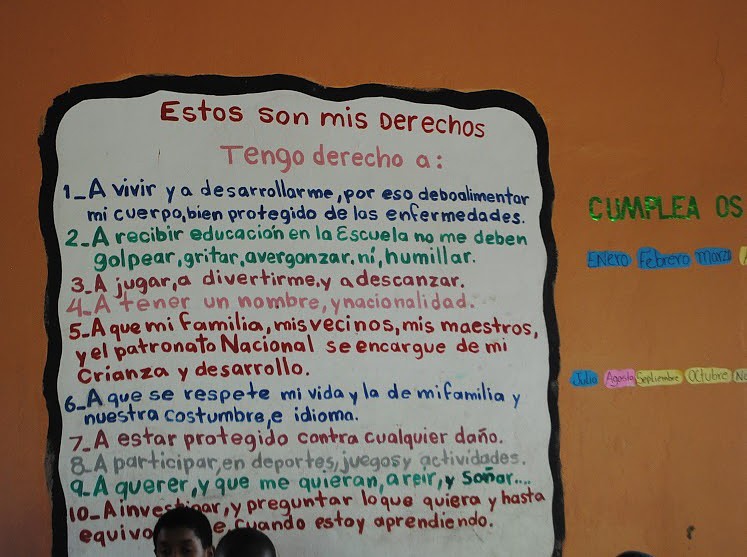 Estos son mis Derechos
Tengo derecho a:
1_A vivir y a desarrollarme, por eso deboalimentar
mi cuerpo, bien protegido de las enfermedades.
2_A recibir educación en la Escuela no me deben
golpear, gritar, avergonzar. ni, humillar.
3_A jugar, a divertirme. y a descanzar.
4_A tener un nombre, y nacionalidad.
5_A que mi familia, mis vecinos, mis maestros,
y el patronato Nacional se encargue de mi
Crianza y desarrollo.
6_A que se respete mi vida y la de mi familia y
nuestra costumbre, e idioma.
7_A estar protegido contra cualquier daño.
8_A participar, en deportes, juegos y actividades.
9_A querer, y que me quieran, a reir, y Soñar....
10_A investigar, y preguntar lo que quiera y hasta
equivo e cuando estoy aprendiendo.
CUMPLEA OS
Enero Febrero Marzo
Julio Agosto Septiembre Octubre No